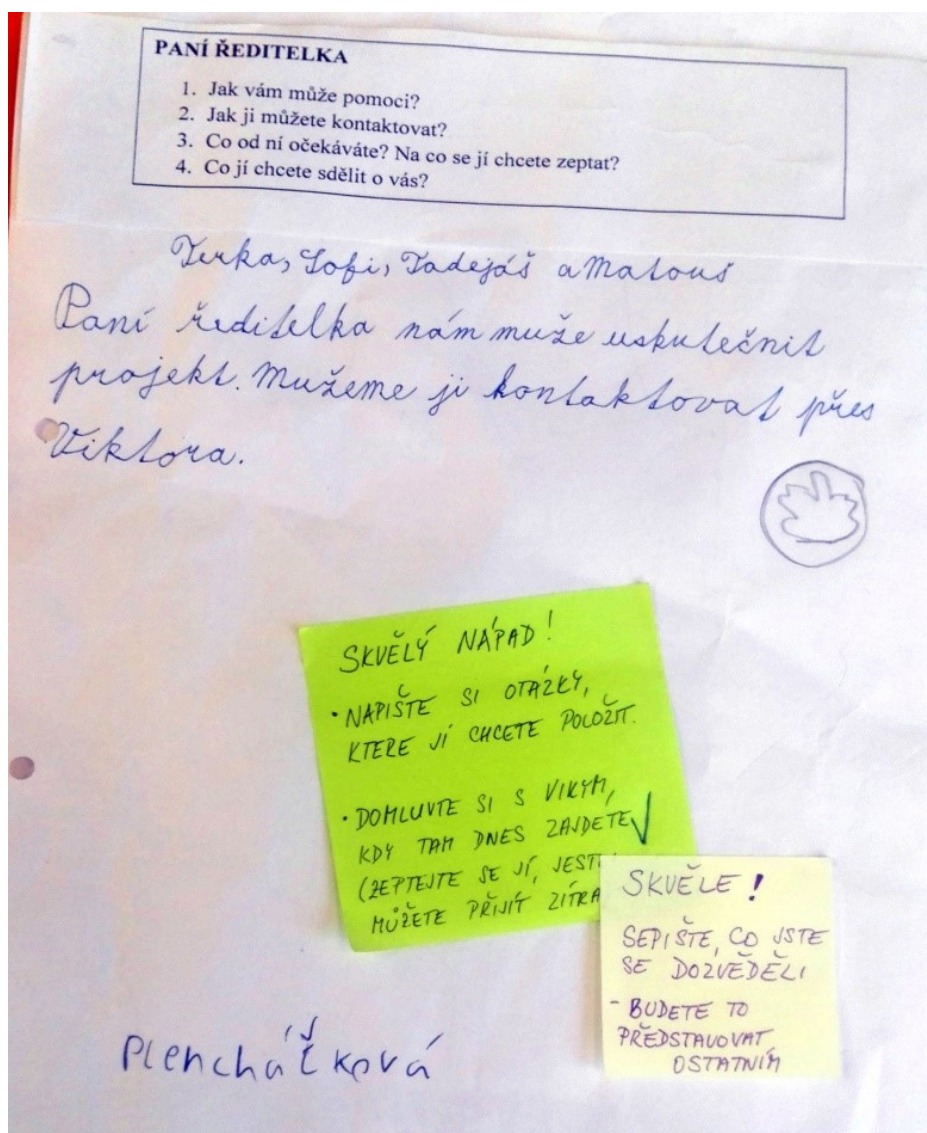 PANÍ ŘEDITELKA
1. Jak vám může pomoci?
2. Jak ji můžete kontaktovat?
3. Co od ní očekáváte? Na co se jí chcete zeptat?
4. Co jí chcete sdělit o vás?
Terka, Sofi, Tadejáš a Matouš
Paní ředitelka nám muže uskutečnit
projekt. Mužeme ji kontaktovat přes
Viktora.
SKVĚLÝ NÁPAD!
• NAPIŠTE SI OTÁZKY,
KTERÉ JÍ CHCETE POLOŽIT.
• DOMLUVTE SI S VIKYM,
KDY TAM DNES ZAJDETE
(ZEPTEJTE SE JÍ, JESTLI
MŮŽETE PŘIJÍT ZÍTRA
SKVĚLE!
SEPIŠTE, CO JSTE
SE DOZVĚDĚLI
- BUDETE TO
PŘEDSTAVOVAT
OSTATNÍM